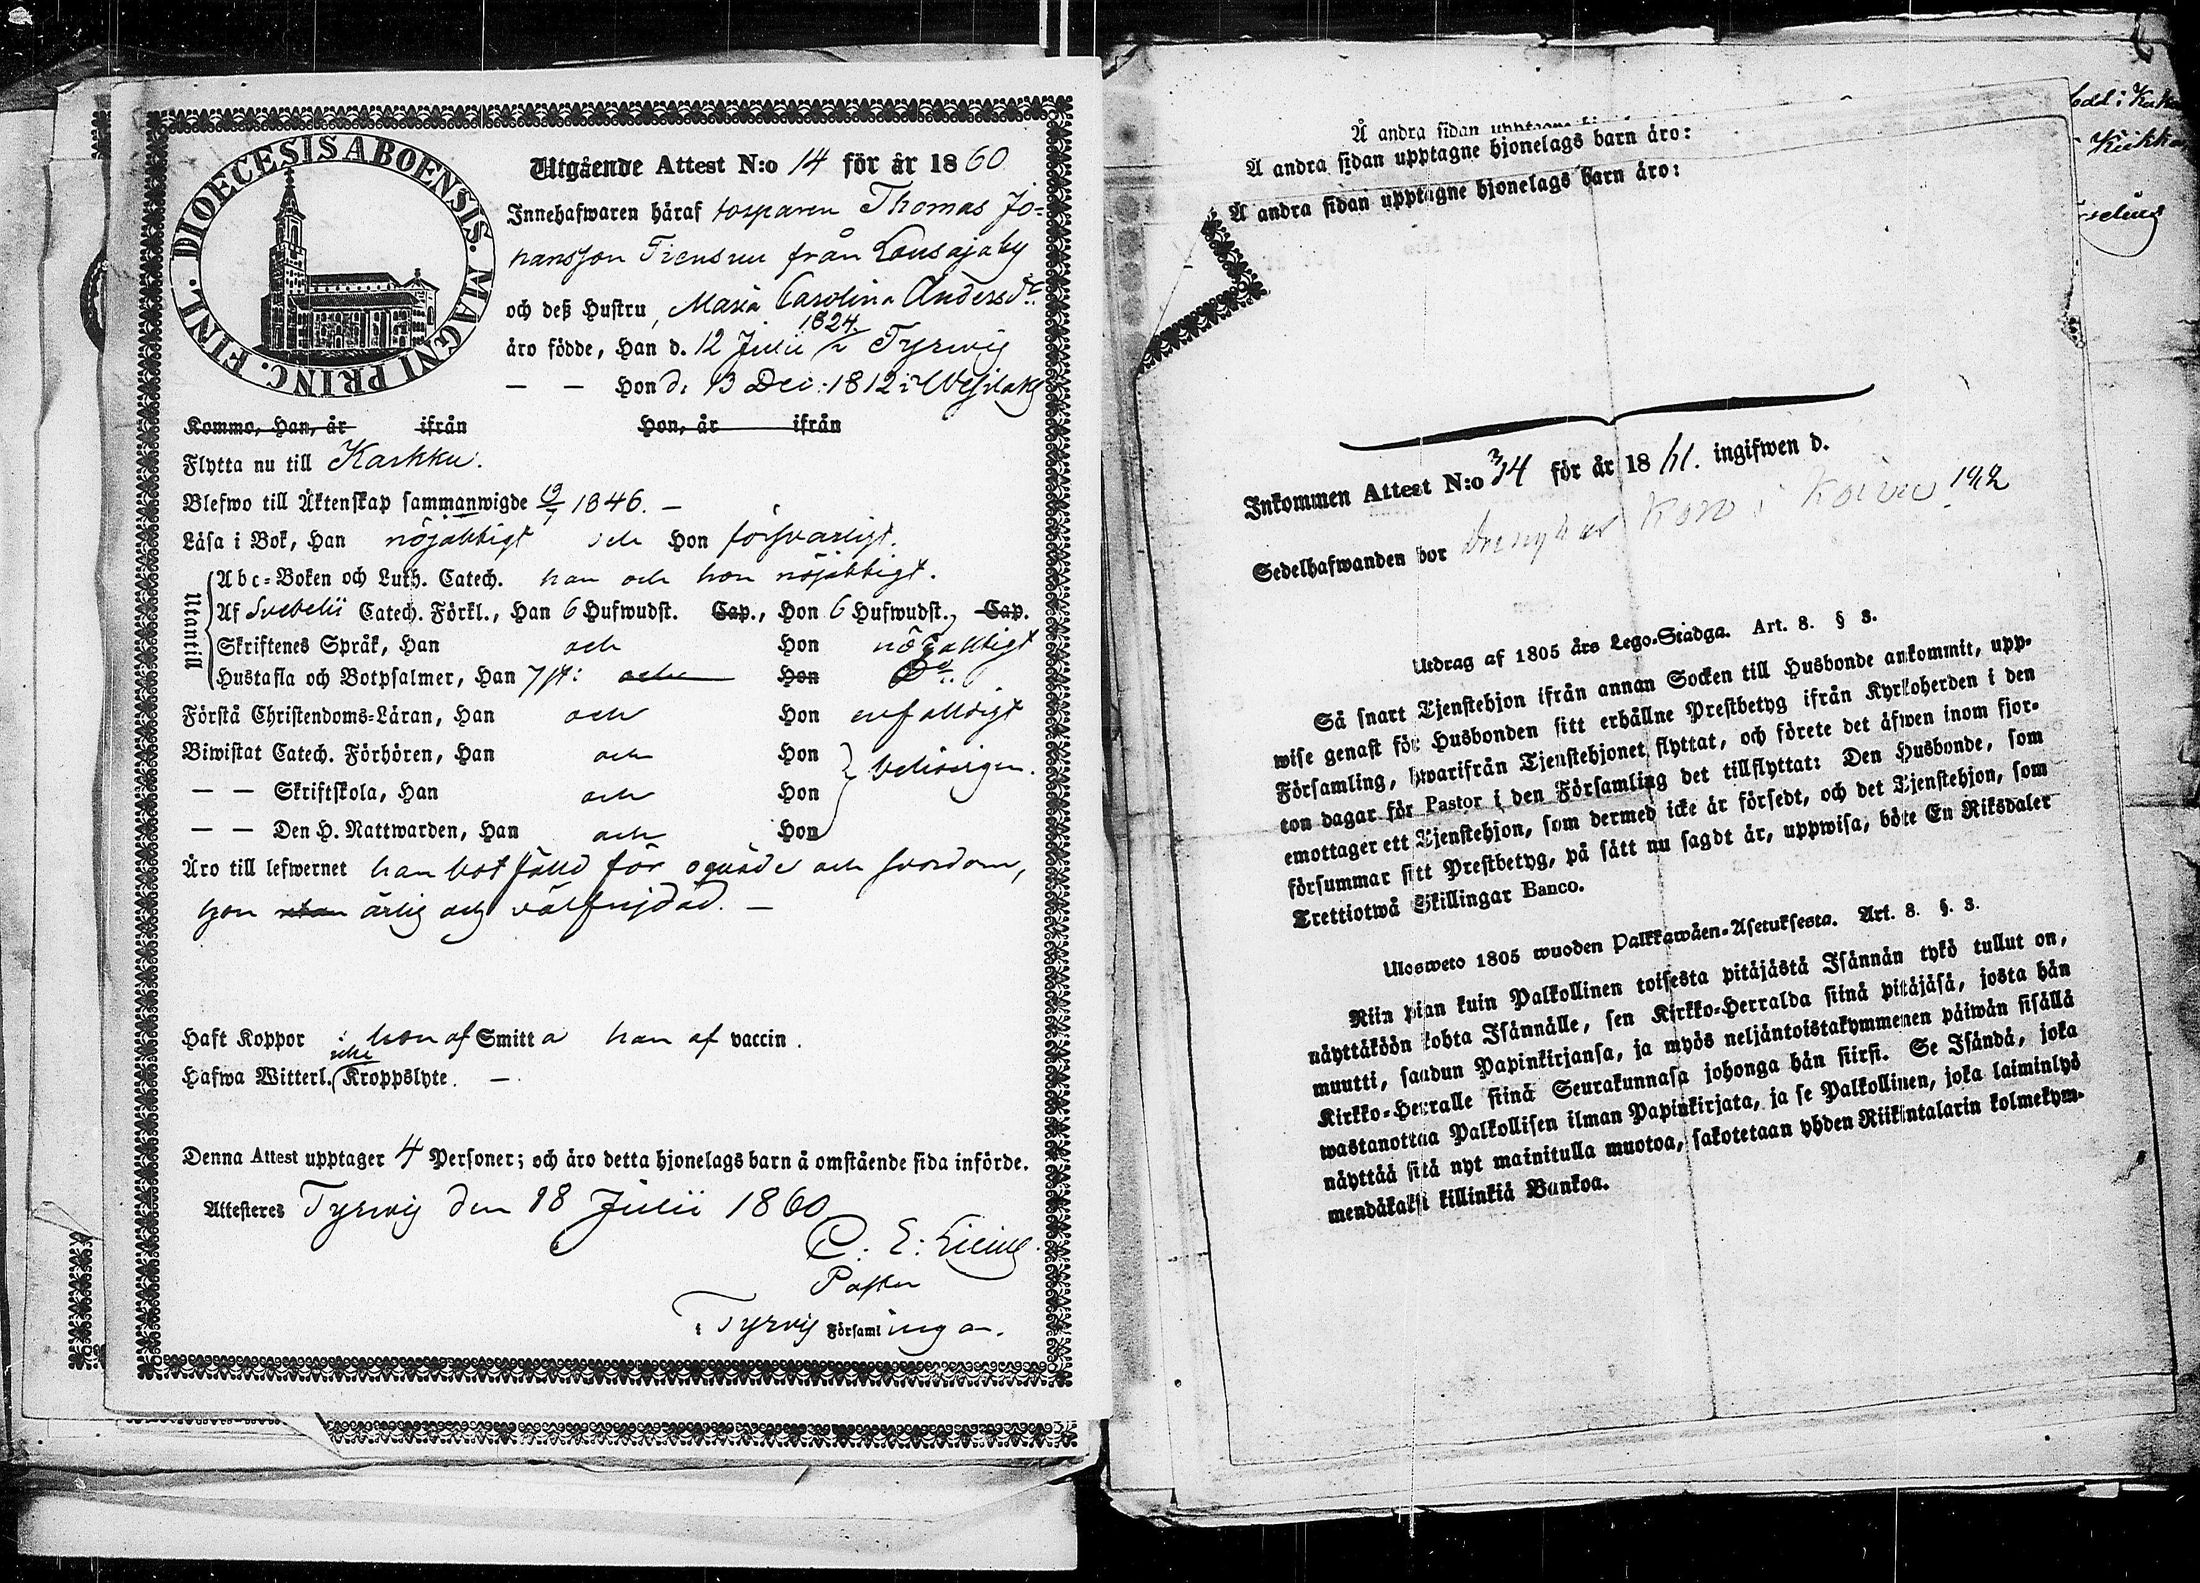 DIOECESIS ABOENSIS. MAGNI PRINC. FINL.
Utgående Attest N:o 14 för år 1860
Innehafwaren häraf torparen Thomas Jo-
hansson Tiensuu från Lousajaby
och deß Hustru, Maria Carolina Andersdr
äro födde, Han d. 12 Julii 1824 i Tyrwis
— — Hon d: 13 Dec: 1812 i Wesilaks
Kommo, Han, år ifrån Hon, år ifrån
Flytta nu till Karkku.
Blefwo till Äktenskap sammanwigde 1846. —
Läsa i Bok, Han nöjaktigt och Hon försvarligt.
Utantill
Abc-Boken och Luth. Catech. han och hon nöjaktigt.
Af Svebelii Catech. Förkl., Han 6 Hufwudst. Cap., Hon 6 Hufwudst., Cap.
Skriftenes Språk, Han och Hon nöjaktigt
Hustafla och Botpsalmer, Han 7 st: och Hon Do
Förstå Christendoms-Läran, Han och Hon enfaldigt
Biwistat Catech. Förhören, Han och Hon
— — Skriftskola, Han och Hon behörigen.
— — Den H. Nattwarden, Han och Hon
Äro till lefwernet han botfälld för oqväde och svordom,
hon utan ärlig och välfrejdad. —
Haft Koppor : hon af Smitta han af vaccin.
Hafwa Witterl. icke Kroppslyte. —
Denna Attest upptager 4 Personer; och äro detta hjonelags barn å omstående sida införde.
Attesteres Tyrvis den 18 Julii 1860
C: E:
Pastor
i Tyrvis Församlingen.
Å andra sidan upptagne
Å andra sidan upptagne hjonelags barn äro:
Å andra sidan upptagne hjonelags barn äro:
Inkommen Attest N:o 34 för år 1861. ingifwen d.
Sedelhafwanden bor
Utdrag af 1805 års Lego-Stadga. Art. 8. § 3.
Så snart Tjenstehjon ifrån annan Socken till Husbonde ankommit, upp-
wise genast för Husbonden sitt erhållne Prestbetyg ifrån Kyrkoherden i den
Församling, hwarifrån Tjenstehjonet flyttat, och förete det äfwen inom fjor-
ton dagar för Pastor i den Församling det tillflyttat: Den Husbonde, som
emottager ett Tjenstehjon, som dermed icke är försedt, och det Tjenstehjon, som
försummar sitt Prestbetyg, på sätt nu sagdt är, uppwisa, böte En Riksdaler
Trettiotwå Skillingar Banco.
Uloswetö 1805 wuoden Palkkawäen-Asetuksesta. Art. 8. §. 3.
Niin pian kuin Palkollinen toisesta pitäjästä Isännän tykö tullut on,
näyttäköön kohta Isännälle, sen Kirkko-Herralda siinä pitäjäsä, josta hän
muutti, saadun Papinkirjansa, ja myös neljäntoistakymmenen päiwän sisällä
Kirkko-Herralle siinä Seurakunnasa johonga hän siirsi. Se Isändä, joka
wastanottaa Palkollisen ilman Papinkirjata, ja se Palkollinen, joka laiminlyö
näyttää sitä nyt mainitulla muotoa, sakotetaan yhden Riikintalarin kolmekym-
mendäkaksi killinkiä Bankoa.